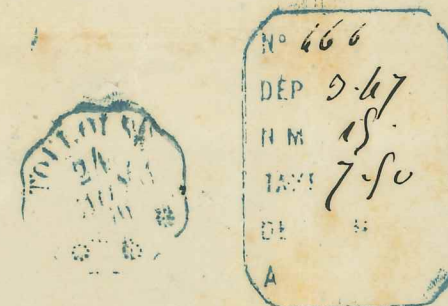 TOULOUSE
24
N° 466
DÉP 9.47
N M 15.
TAXE 7.50
DE "
A